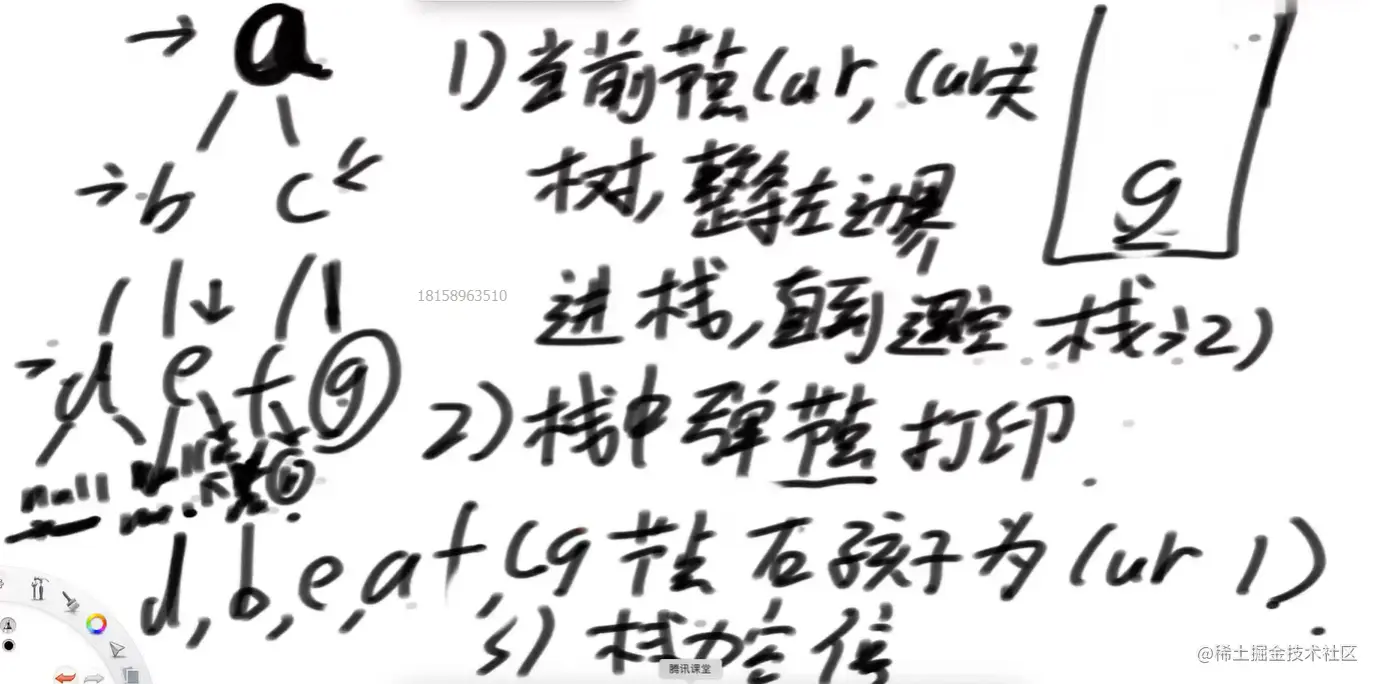 → a
1) 当前节点cur, cur头
树, 整条左边界
进栈, 直到遇空 栈>2)
→ b c
18158963510
→ d e f g
2) 栈中弹节点打印
null
d, b, e, a f, c g 节点右孩子为cur 1)
3) 栈为空停
腾讯课堂
@稀土掘金技术社区
g